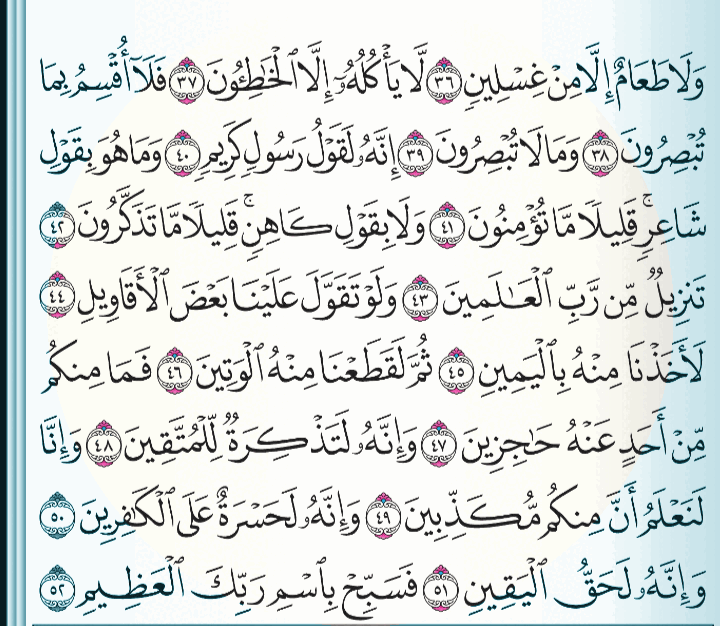 وَلَا طَعَامٌ إِلَّا مِنْ غِسْلِينٍ ٣٦ لَّا يَأْكُلُهُۥٓ إِلَّا ٱلْخَٰطِـُٔونَ ٣٧ فَلَآ أُقْسِمُ بِمَا
تُبْصِرُونَ ٣٨ وَمَا لَا تُبْصِرُونَ ٣٩ إِنَّهُۥ لَقَوْلُ رَسُولٍ كَرِيمٍ ٤٠ وَمَا هُوَ بِقَوْلِ
شَاعِرٍۚ قَلِيلًا مَّا تُؤْمِنُونَ ٤١ وَلَا بِقَوْلِ كَاهِنٍۚ قَلِيلًا مَّا تَذَكَّرُونَ ٤٢
تَنزِيلٌ مِّن رَّبِّ ٱلْعَٰلَمِينَ ٤٣ وَلَوْ تَقَوَّلَ عَلَيْنَا بَعْضَ ٱلْأَقَاوِيلِ ٤٤
لَأَخَذْنَا مِنْهُ بِٱلْيَمِينِ ٤٥ ثُمَّ لَقَطَعْنَا مِنْهُ ٱلْوَتِينَ ٤٦ فَمَا مِنكُم
مِّنْ أَحَدٍ عَنْهُ حَٰجِزِينَ ٤٧ وَإِنَّهُۥ لَتَذْكِرَةٌ لِّلْمُتَّقِينَ ٤٨ وَإِنَّا
لَنَعْلَمُ أَنَّ مِنكُم مُّكَذِّبِينَ ٤٩ وَإِنَّهُۥ لَحَسْرَةٌ عَلَى ٱلْكَٰفِرِينَ ٥٠
وَإِنَّهُۥ لَحَقُّ ٱلْيَقِينِ ٥١ فَسَبِّحْ بِٱسْمِ رَبِّكَ ٱلْعَظِيمِ ٥٢